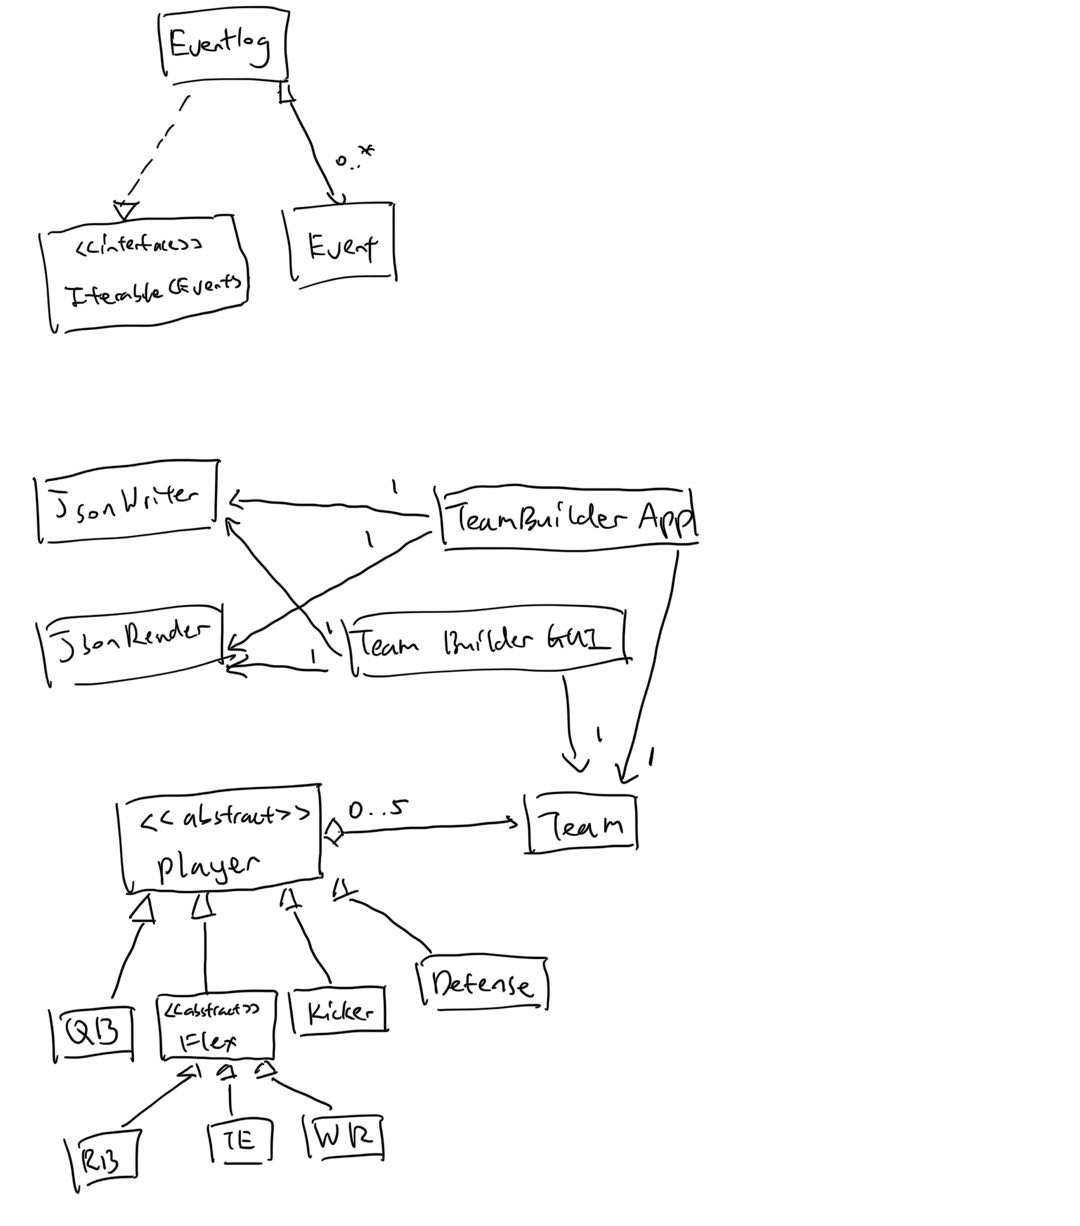 Eventlog
0..*
<<interface>>
Iterable<Event>
Event
JsonWriter
1
TeamBuilder App
1
JsonRender
1
1
Team Builder GUI
1
1
<<abstract>>
player
0..5
Team
QB
<<abstract>>
Flex
Kicker
Defense
RB
TE
WR